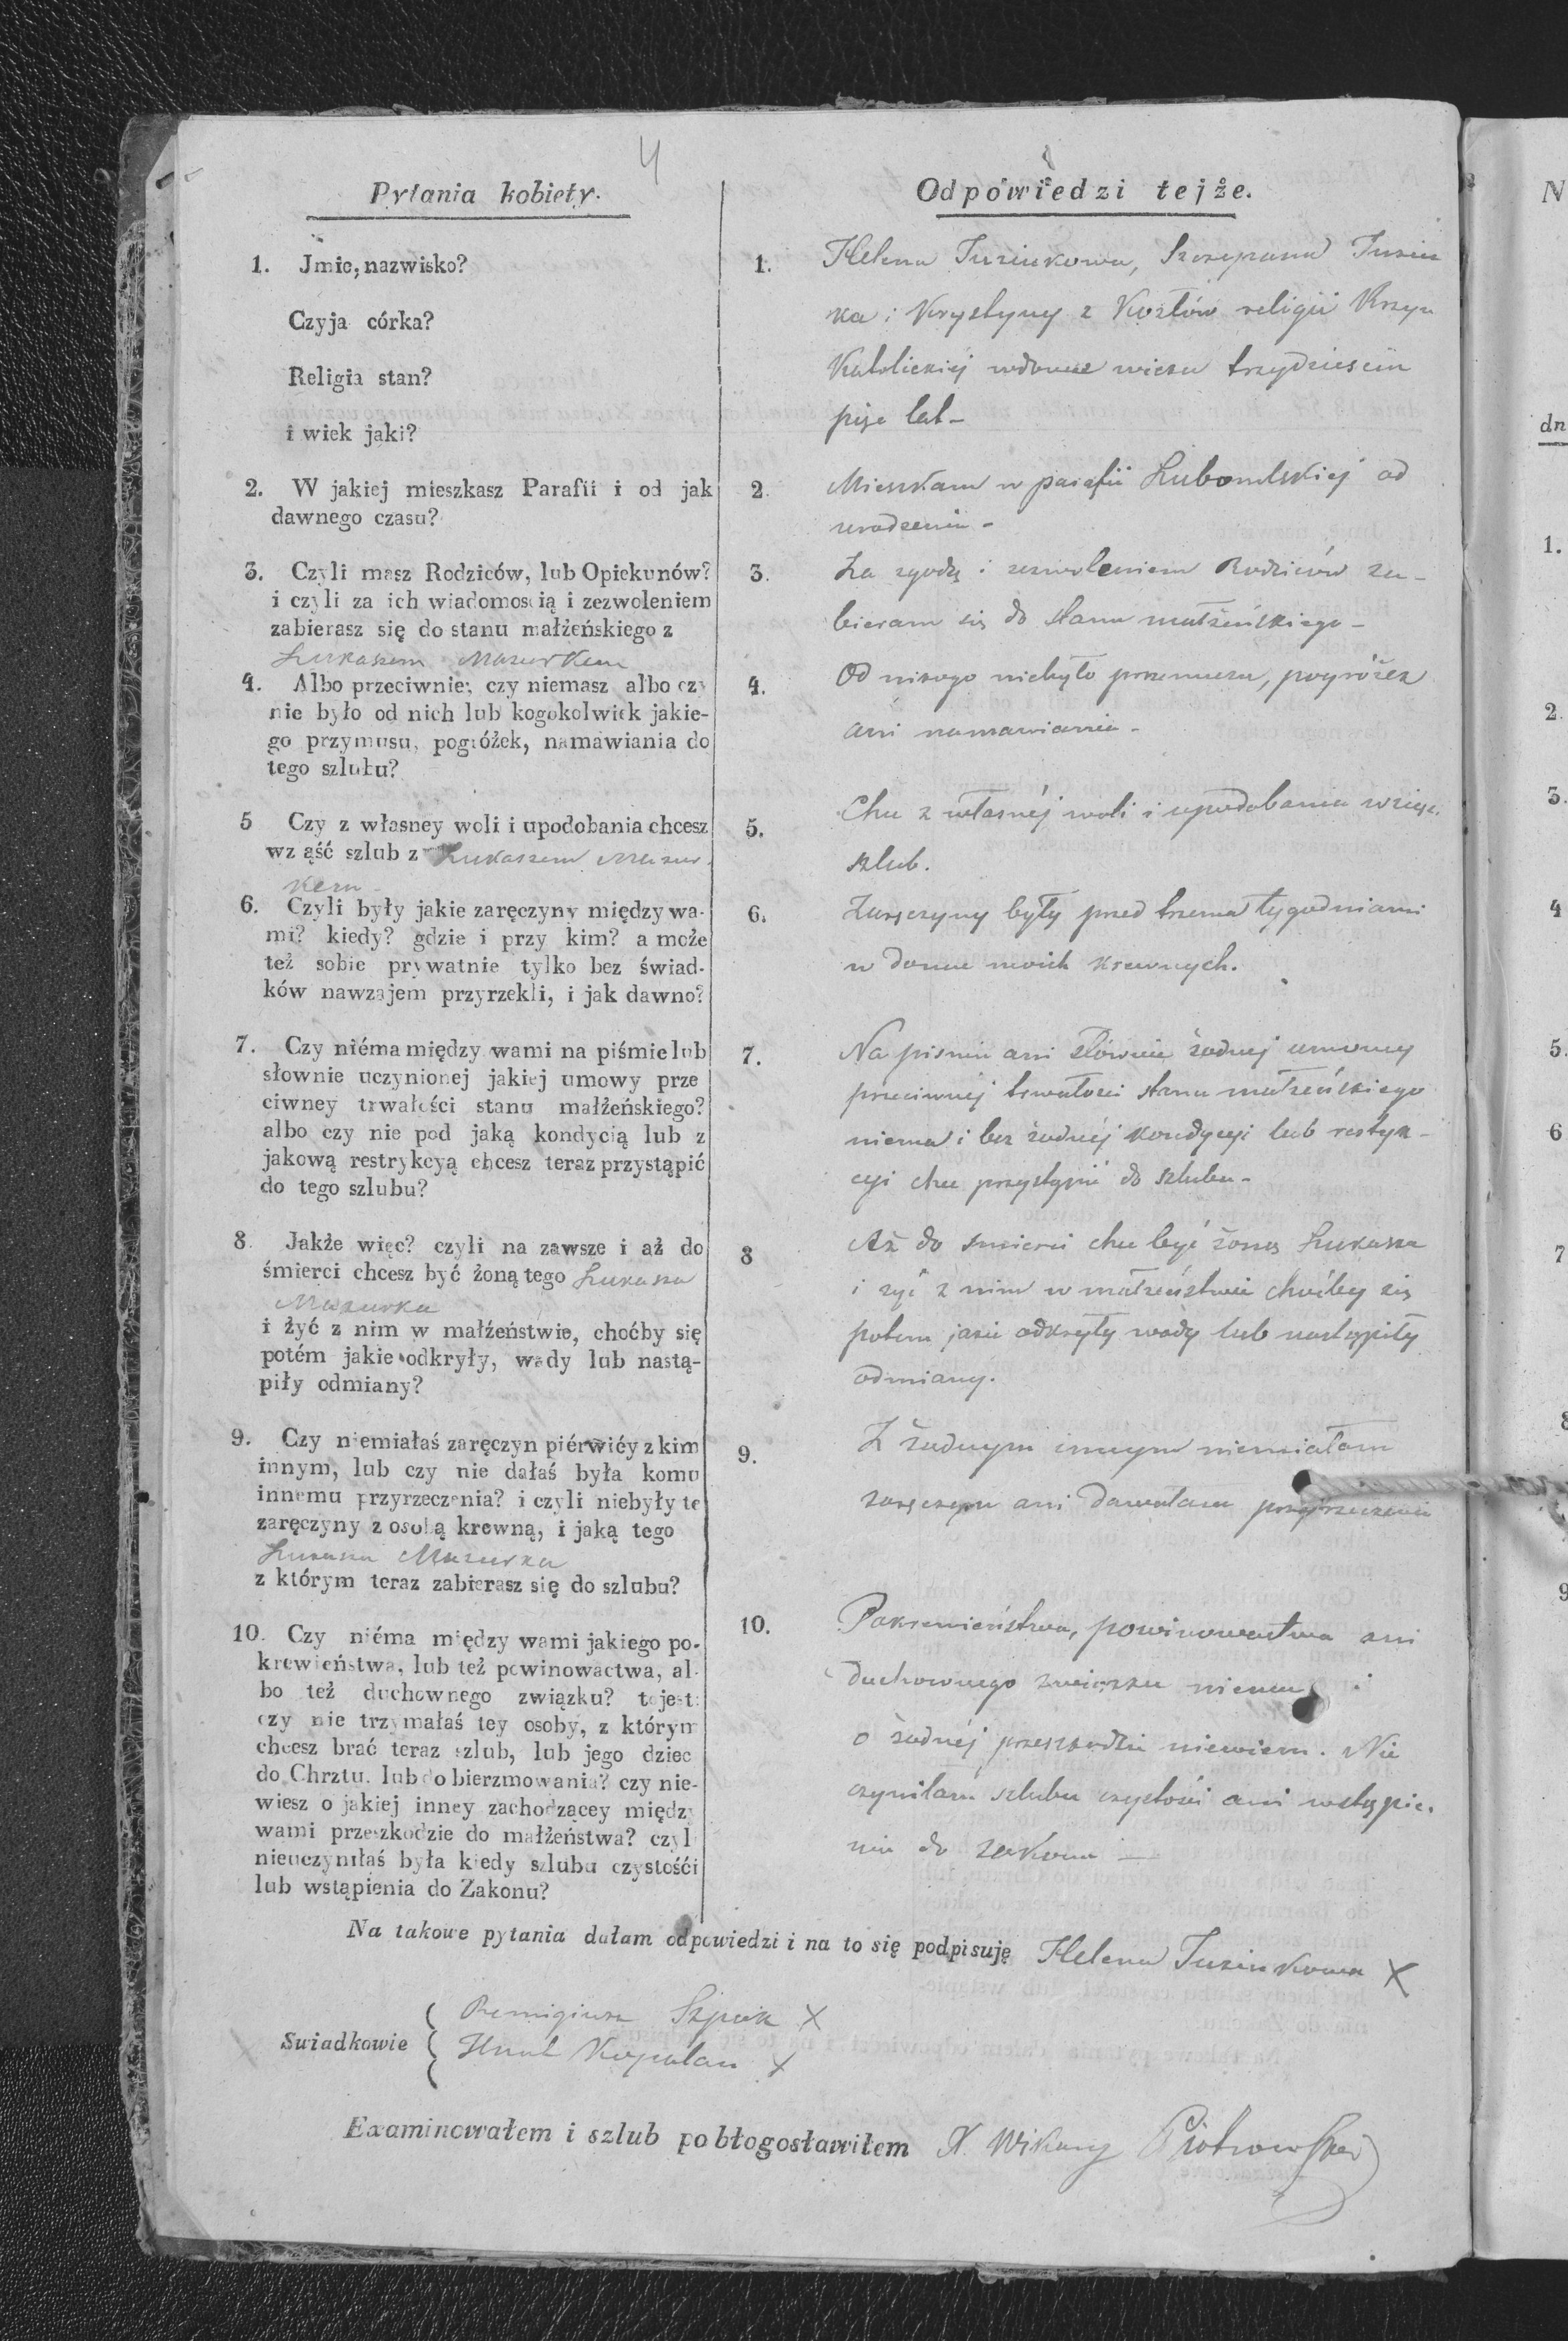 4
Pytania kobiety.
1. Jmie, nazwisko?
Czyja córka?
Religia stan?
i wiek jaki?
2. W jakiej mieszkasz Parafii i od jak
dawnego czasu?
3. Czyli masz Rodziców, lub Opiekunów?
i czyli za ich wiadomoscią i zezwoleniem
zabierasz się do stanu małżeńskiego z
Łukaszem Mazurkem
4. Albo przeciwnie; czy niemasz albo czy
nie było od nich lub kogokolwiek jakie-
go przymusu, pogróżek, namawiania do
tego szlubu?
5 Czy z własney woli i upodobania chcesz
wziąść szlub z Łukaszem Mazur.
kem
6. Czyli były jakie zaręczyny między wa-
mi? kiedy? gdzie i przy kim? a może
też sobie prywatnie tylko bez świad-
ków nawzajem przyrzekli, i jak dawno?
7. Czy niéma między wami na piśmie lub
słownie uczynionej jakiej umowy prze
ciwney trwałości stanu małżeńskiego?
albo czy nie pod jaką kondycią lub z
jakową restrykcyą chcesz teraz przystąpić
do tego szlubu?
8. Jakże więc? czyli na zawsze i aż do
śmierci chcesz być żoną tego Łukasza
Mazurka
i żyć z nim w małżeństwie, choćby się
potém jakie odkryły, wady lub nastą-
piły odmiany?
9. Czy niemiałaś zaręczyn piérwiéy z kim
innym, lub czy nie dałaś była komu
innemu przyrzeczenia? i czyli niebyły te
zaręczyny z osobą krewną, i jaką tego
Łukasza Mazurka
z którym teraz zabierasz się do szlubu?
10. Czy niéma między wami jakiego po-
krewieństwa, lub też powinowactwa, al-
bo też duchownego związku? to jest:
czy nie trzymałaś tey osoby, z którym
chcesz brać teraz szlub, lub jego dziec
do Chrztu. lub do bierzmowania? czy nie-
wiesz o jakiej inney zachodzącey między
wami przeszkodzie do małżeństwa? czyl
nieuczyniłaś była kiedy szlubu czystośći
lub wstąpienia do Zakonu?
Odpowiedzi tejże.
1. Helena Tuzinkowa, Szczepana Tuzin
ka i Krystyny z Kozłów religii Rzym
Katolickiéj wdowa wieku trzydzieści
pięć lat -
2. Mieszkam w parafii Lubomlskiej od
urodzenia -
3. Za zgodą i zezwoleniem Rodziców za-
bieram się do stanu małżeńskiego -
4. Od nikogo niebyło przymusu, pogróżek
ani namawiania -
5. Chcę z własnéj woli i upodobania wziąść
szlub.
6. Zaręczyny były przed trzema tygodniami
w domu moich krewnych.
7. Na piśmie ani słownie żadnej umowy
przeciwnéj trwałości stanu małżeńskiego
niema i bez żadnéj kondycyi lub restryk-
cyi chcę przystąpić do szlubu -
8 Aż do śmierci chcę być żoną Łukasza
i żyć z nim w małżeństwie choćby się
potem jakie odkryły wady lub nastąpiły
odmiany.
9. Z żadnym innym niemiałam
zaręczyn ani dawałam przyrzeczenia
10. Pokrewieństwa, powinowactwa ani
duchownego związku niema i
o żadnéj przeszkodzie niewiem. Nie
czyniłam szlubu czystości ani wstąpie.
nia do zakonu -
Na takowe pytania dałam odpowiedzi i na to się podpisuję Helena Tuzinkowa X
Swiadkowie
Remigiusz Szpak X
Hnat Kopalan X
Examinowałem i szlub pobłogosławiłem X. Wikary Piotrowski
N
dn
1.
2.
3.
4
5.
6
7
8
9